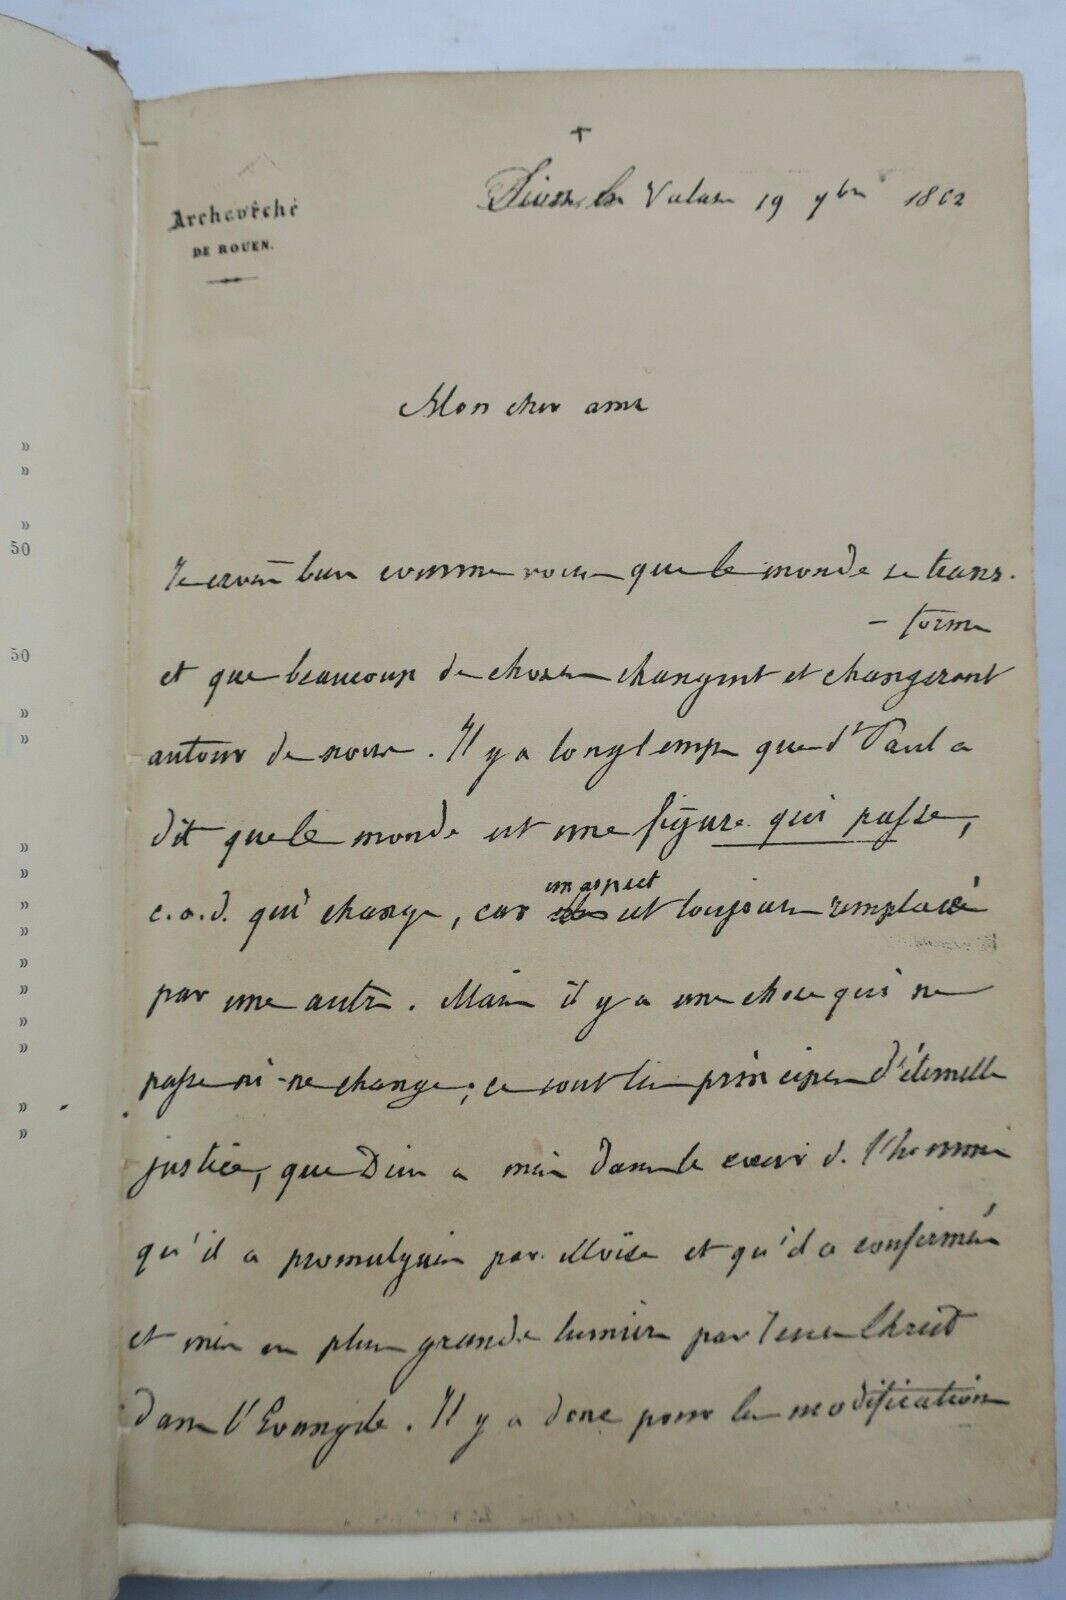 »
»
»
50
50
»
»
»
»
»
»
»
»
»
»
»
»
Archevêché
DE ROUEN.
+
19 7bre 1862
Mon cher ami
Je crois bien comme vous que le monde se trans-
- forme
et que beaucoup de choses changent et changeront
autour de nous. Il y a longtemps que St Paul a
dit que le monde est une figure qui passe,
c.a.d. qui change, car un aspect est toujours remplacé
par une autre. Mais il y a une chose qui ne
passe ni ne change; ce sont les principes d'éternelle
justice, que Dieu a mis dans le cœur de l'homme
qu'il a promulgués par Moïse et qu'il a confirmés
et mis en plus grande lumière par Jésus Christ
dans l'Evangile. Il y a donc pour les modifications